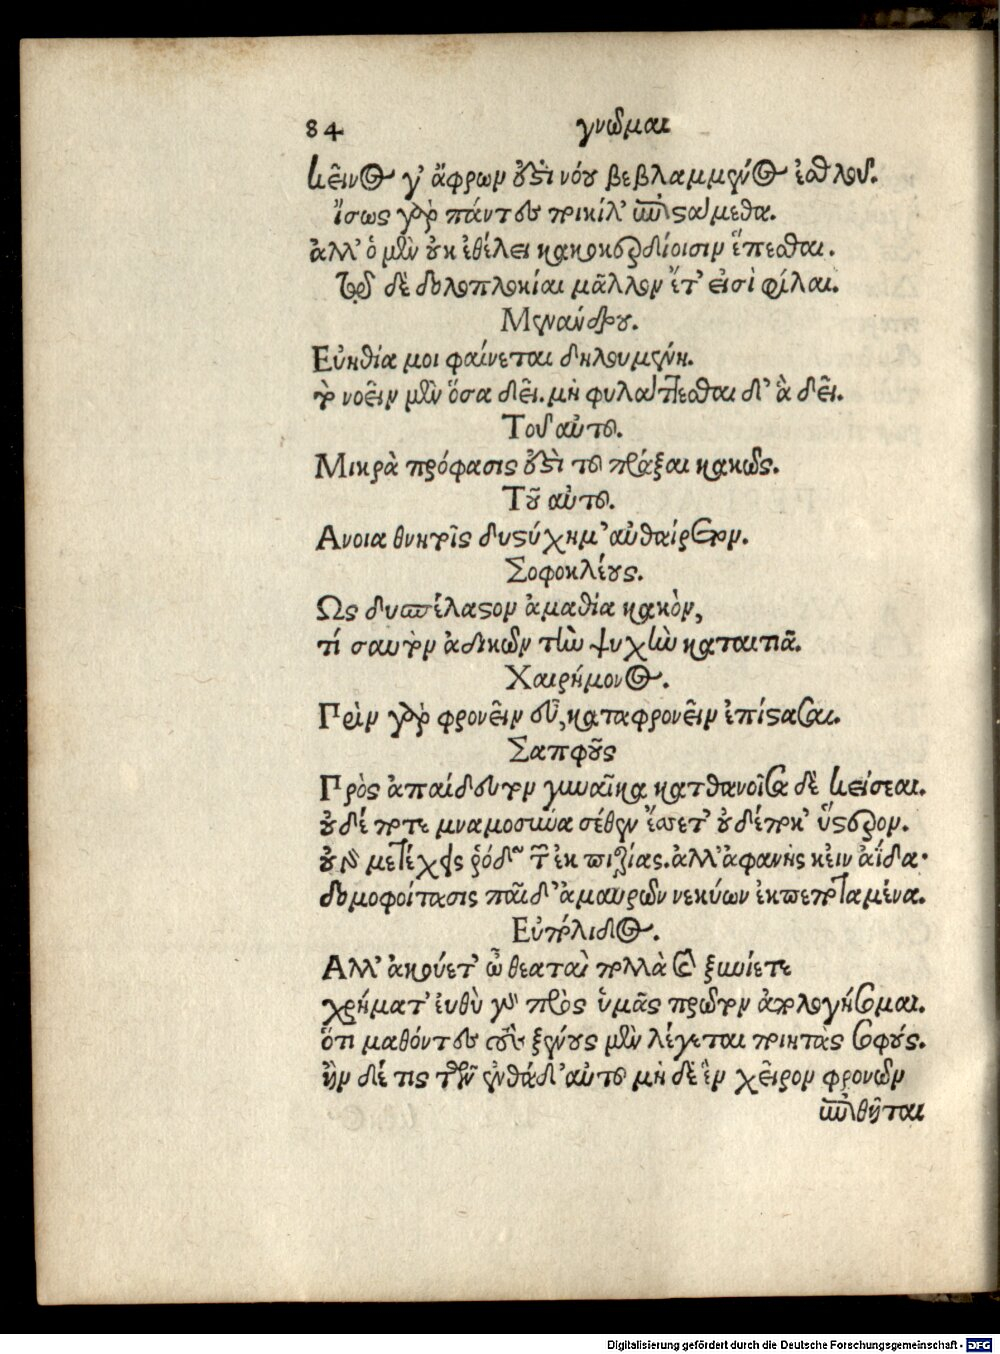 84 γνῶμαι
κεῖνος γ' ἄφρων ἐστὶ νόου βεβλαμμένος ἐσθλοῦ.
ἴσως γὰρ πάντες ποικίλ' ἐπιστάμεθα.
ἀλλ' ὁ μὲν οὐκ ἐθέλει κακοκερδίοισιν ἕπεσθαι.
τῷ δὲ δολοπλοκίαι μᾶλλον ἔτ' εἰσὶ φίλαι.
Μενάνδρου.
Εὐηθία μοι φαίνεται δηλουμένη.
τὸ νοεῖν μὲν ὅσα δεῖ. μὴ φυλάττεσθαι δ' ἃ δεῖ.
Τοῦ αὐτοῦ.
Μικρὰ πρόφασις ἐστὶ τοῦ πρᾶξαι κακῶς.
Τοῦ αὐτοῦ.
Ανοια θνητοῖς δυστύχημ' αὐθαίρετον.
Σοφοκλέους.
Ως δυσπέλαστον ἀμαθία κακὸν,
τί σαυτὸν ἀδικῶν τὴν ψυχὴν καταιτιᾷ.
Χαιρήμονος.
Πρὶν γὰρ φρονεῖν εὖ, καταφρονεῖν ἐπίστασαι.
Σαπφοῦς
Πρὸς ἀπαίδευτον γυναῖκα κατθανοῖσα δὲ κείσεαι.
οὐδέ ποτε μναμοσύνα σέθεν ἔσετ' οὐδέποκ' ὕστερον.
οὐ γὰρ μετέχεις ῥόδων τῶν ἐκ πιερίας. ἀλλ' ἀφανὴς κἠν ἀΐδα·
δομοφοίτασις πεδ' ἀμαυρῶν νεκύων ἐκπεποταμένα.
Εὐπόλιδος.
Αλλ' ἀκούετ' ὦ θεαταὶ πολλὰ καὶ ξυνίετε
χρήματ' εὐθὺ γὰρ πρὸς ὑμᾶς πρῶτον ἀπολογήσομαι.
ὅτι μαθόντες τοὺς ξένους μὲν λέγεται ποιητὰς σοφούς.
ἢν δέ τις τῶν ἐνθάδ' αὐτοῦ μὴ δὲ ἓν χεῖρον φρονῶν
ἐπιθῆται
Digitalisierung gefördert durch die Deutsche Forschungsgemeinschaft - DFG